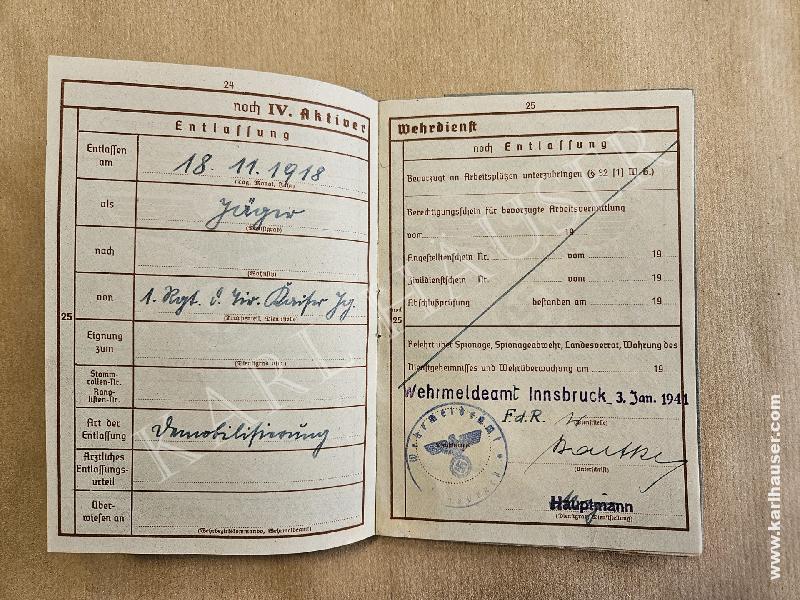 24
noch IV. Aktiver
Entlassung
Entlassen am
18. 11. 1918
(Tag, Monat, Jahr)
als
Jäger
(Dienstgrad)
nach
(Wohnsitz)
von
1. Rgt. d. Tir. Kaiser Jg.
(Truppenteil, Dienststelle)
25
Eignung zum
(Dienstgrad usw.)
Stamm-
rollen-Nr.
Rang-
listen-Nr.
Art der Entlassung
Demobilisierung
Ärztliches
Entlassungs-
urteil
Über-
wiesen an
(Wehrbezirkskommando, Wehrmeldeamt)
25
Wehrdienst
noch Entlassung
Bevorzugt an Arbeitsplätzen unterzubringen (§ 32 [1] W.G.)
Berechtigungsschein für bevorzugte Arbeitsvermittlung
vom 19
Angestelltenschein Nr. vom 19
Zivildienstschein Nr. vom 19
Abschlußprüfung bestanden am 19
noch 25
Belehrt über Spionage, Spionageabwehr, Landesverrat, Wahrung des
Dienstgeheimnisses und Wehrüberwachung am 19
Wehrmeldeamt Innsbruck 3. Jan. 1941
F.d.R.
(Dienststelle)
Wehrmeldeamt
(Unterschrift)
Hauptmann
(Dienstgrad, Dienststellung)
KARL HAUSER
www.karlhauser.com